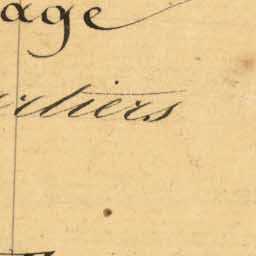 age
rtiers